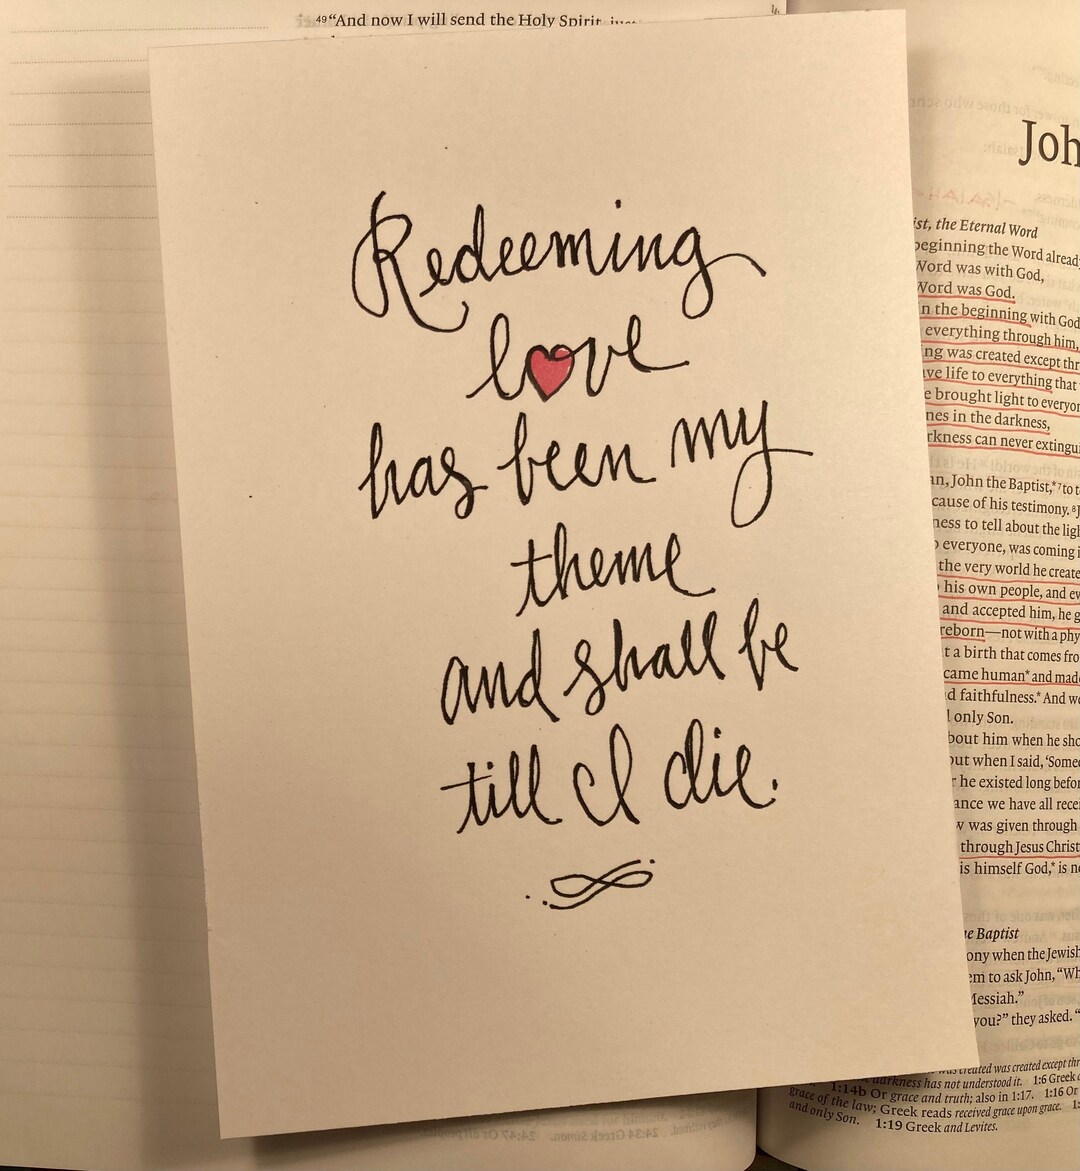 49 “And now I will send the Holy Spirit, just
Redeeming
love
has been my
theme
and shall be
till I die.
Joh
ist, the Eternal Word
beginning the Word already
Word was with God,
Word was God.
n the beginning with God
everything through him,
ng was created except thr
ve life to everything that
e brought light to everyon
nes in the darkness,
rkness can never extingui
an, John the Baptist,* 7 to t
cause of his testimony. 8 J
ness to tell about the ligh
everyone, was coming i
the very world he create
his own people, and ev
and accepted him, he g
reborn—not with a phy
t a birth that comes fro
came human* and made
d faithfulness.* And we
only Son.
bout him when he sho
out when I said, ‘Someo
r he existed long befor
ance we have all recei
w was given through
through Jesus Christ
is himself God,* is ne
e Baptist
ony when the Jewish
em to ask John, “Wh
Messiah.”
you?” they asked. “
was created was created except thr
darkness has not understood it. 1:6 Greek a
1:14b Or grace and truth; also in 1:17. 1:16 Or
grace of the law; Greek reads received grace upon grace. 1:
and only Son. 1:19 Greek and Levites.